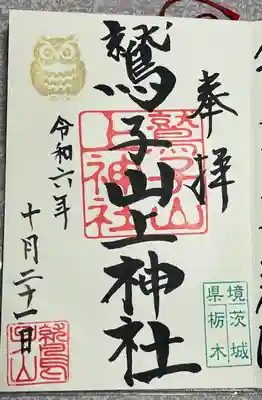 奉拝
鷲子山上神社
鷲子山
上神社
令和六年
十月二十一日
境茨城
県栃木